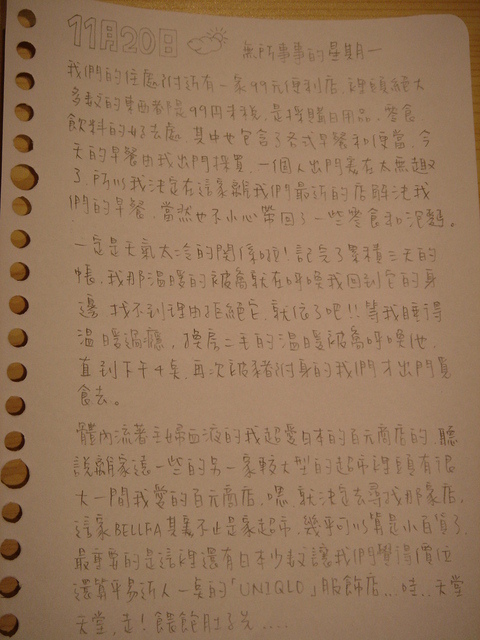 11月20日 無所事事的星期一
我們的住處附近有一家99元便利店,裡頭絕大
多數的東西都是99円未稅,是採購日用品,零食
飲料的好去處,其中也包含了各式早餐和便當,今
天的早餐由我出門採買,一個人出門實在太無趣
了,所以我決定在這家離我們最近的店解決我
們的早餐,當然也不小心帶回了一些零食和泡麵。
一定是天氣太冷的關係啦!記完了累積三天的
帳,我那溫暖的被窩就在呼喚我回到它的身
邊,找不到理由拒絕它,就依了吧!!等我睡得
溫暖過癮,換房二手的溫暖被窩呼喚他,
直到下午4點,再次被豬附身的我們才出門覓
食去。
體內流著主婦血液的我超愛日本的百元商店的,聽
說離家遠一些的另一家較大型的超市裡頭有很
大一間我愛的百元商店,嗯,就決定去尋找那家店,
這家BELLFA其實不止是家超市,幾乎可以算是小百貨了,
最重要的是這裡還有日本少數讓我們覺得價位
還算平易近人一點的「UNIQLO」服飾店...哇...天堂
天堂,走!餵飽肚子先.....